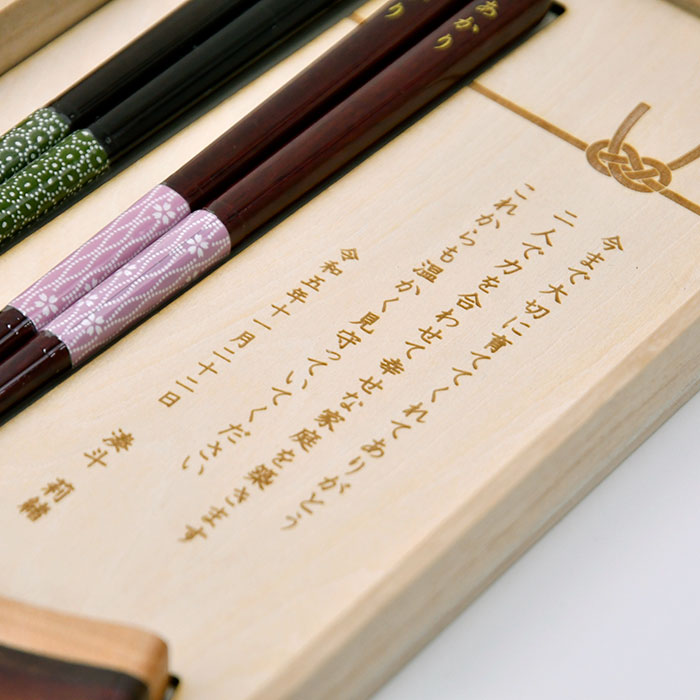 今まで大切に育ててくれてありがとう
二人で力を合わせて幸せな家庭を築きます
これからも温かく見守っていてください
令和五年十一月二十二日
湊斗 莉緒
あかり